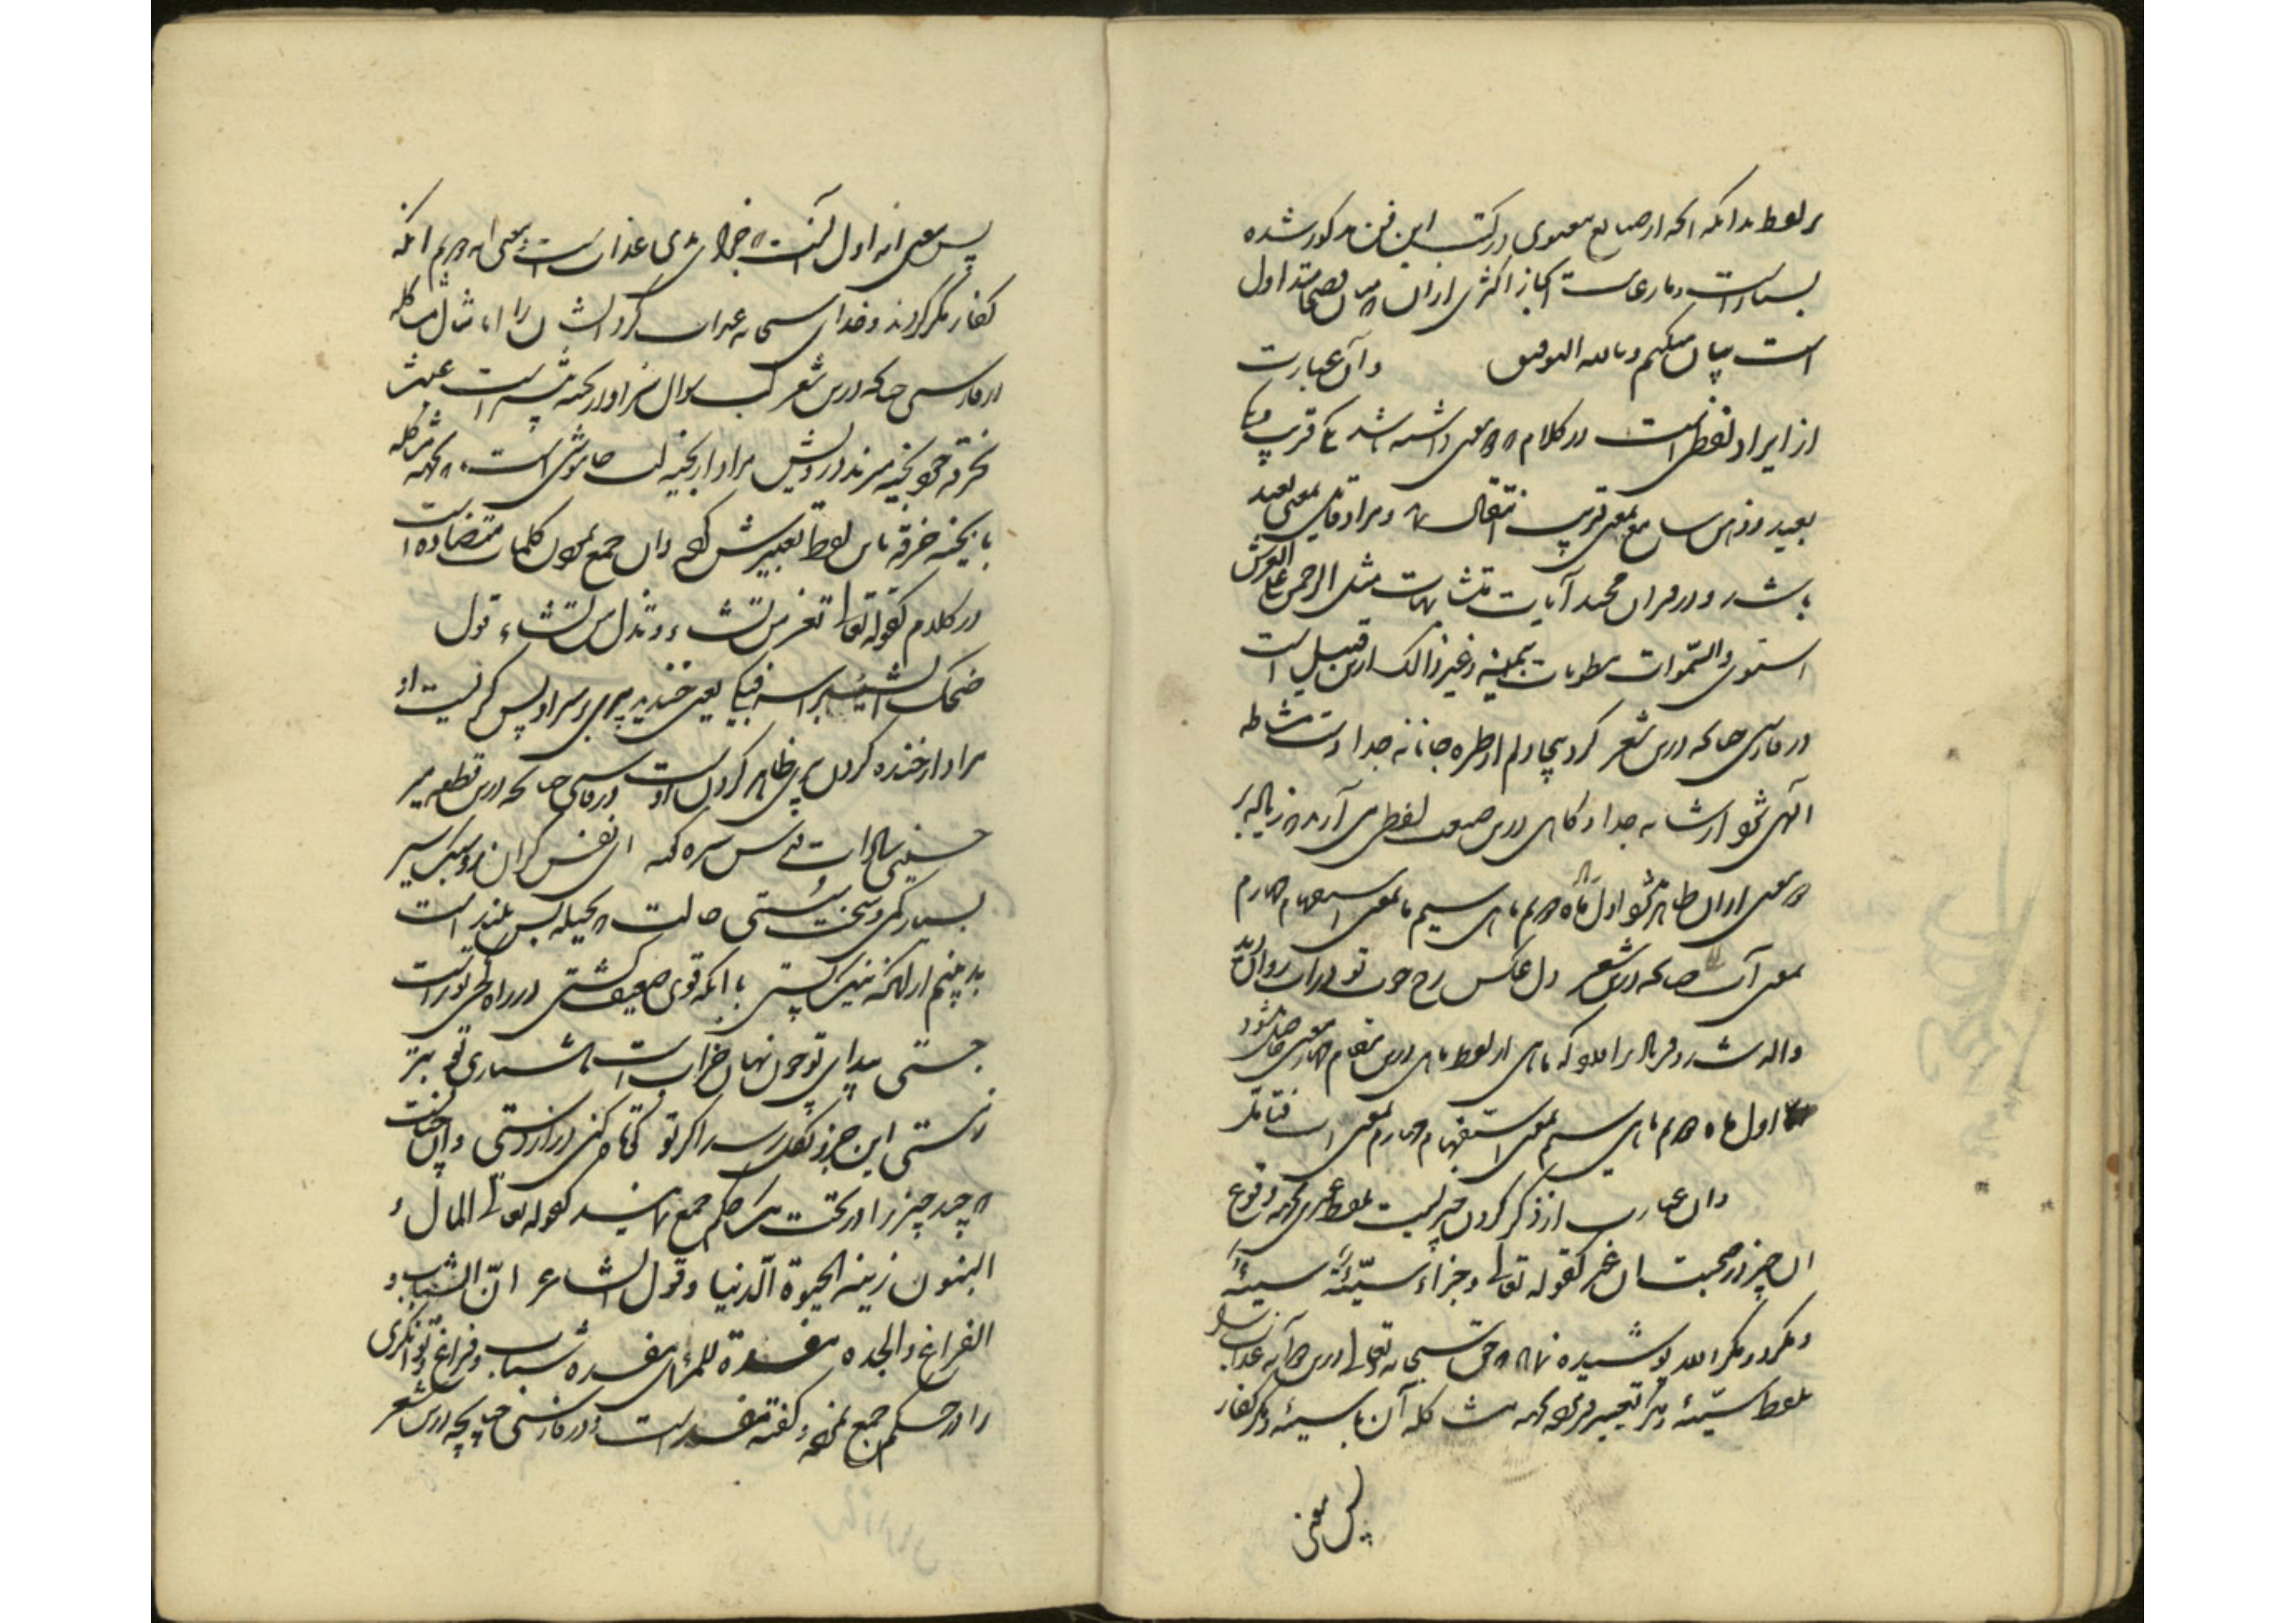 بر لفظ بدانکه آنچه از صنایع معنوی در کتب این فن مذکور شده
بسیار است و بارعایت ایجاز اکثری ازان
است بیان میکنم وبالله التوفیق و آن عبارت
از ایراد لفظی است در کلام که دو معنی داشته باشد یکی قریب و یکی
بعید و ذهن سامع بمعنی قریب انتقال نماید و مراد قائل معنی بعید
باشد و در قرآن مجید آیات متشابهات مثل الرحمن علی العرش
استوی والسموات مطویات بیمینه وغیر ذالک ازین قبیل است
در فارسی چنانکه درین شعر کرد پیچا دلم از طره جانانه جدا دست مشاطه
الهی شود از شانه جدا و گاهی درین صنعت لفظی می آرند که زیاده بر
دو معنی ازان ظاهر شود اول ماه دویم ماهی سیم ما بمعنی استفهام چهارم
بمعنی آب چنانکه درین شعر دل عکس رخ خوب تو در آب روان دید
واله شد و فریاد برآورد که ماهی از لفظ ماهی درین مقام چهار معنی حاصل شود
اول ماه دویم ماهی سیم بمعنی استفهام چهارم بمعنی آب فتامل
و آن عبارت از ذکر کردن چیزیست بلفظ غیری بجهة وقوع
آن چیز در صحبت آن غیر کقوله تعالی وجزاء سیئة سیئة
و مکروا و مکر الله پوشیده نماند که حق سبحانه تعالی درین دو آیه عذاب
بلفظ سیئه و مکر تعبیر فرموده بجهة مشاکله آن با سیئه و مکر کفار
پس معنی
پس معنی آیه اول آنست که جزای بدی عذاب است و معنی آیه دویم آنکه
کفار مکر کردند و خدای سبحانه عذاب کرد ایشان را اما مثال مشاکله
در فارسی چنانکه درین شعر لب سوال سزاوار بخیه بیشتر است عبث
بخرقه خود بخیه میزند درویش مراد از بخیه لب خاموشی است که بجهة مشاکله
با بخیه خرقه باین لفظ تعبیرش کرده و آن جمع نمودن کلمات متضاده است
در کلام کقوله تعالی تعز من تشاء و تذل من تشاء قول
ضحک المشیب براسه فبکی یعنی خندید پیری بر سر او پس گریست او
مراد از خنده کردن پیری ظاهر کردن اوست در فارسی چنانکه درین قطعه میر
حسینی سادات قدس سره گفته ای نفس گران رو سبک سیر
بسیار کمی و سخت سستی حالت که بحیله بس بلند است
بد بینم ازانکه نیک پستی با آنکه قوی ضعیف گشتی در راه کجی تو راست
جستی پیدای تو چون نهان خراب است هشیاری تو بتر
ز مستی این جزو بکل رسد اگر تو کوتاه کنی دراز دستی و آن چنانست
که چند چیز را در تحت یک حکم جمع نمایند کقوله تعالی المال و
البنون زینة الحیوة الدنیا وقول الشاعر انّ الشباب و
الفراغ والجده مفسدة للمرء ای مفسده شباب و فراغ و توانگری
را در حکم جمع نموده و گفته مفسد است و در فارسی چنانچه درین شعر